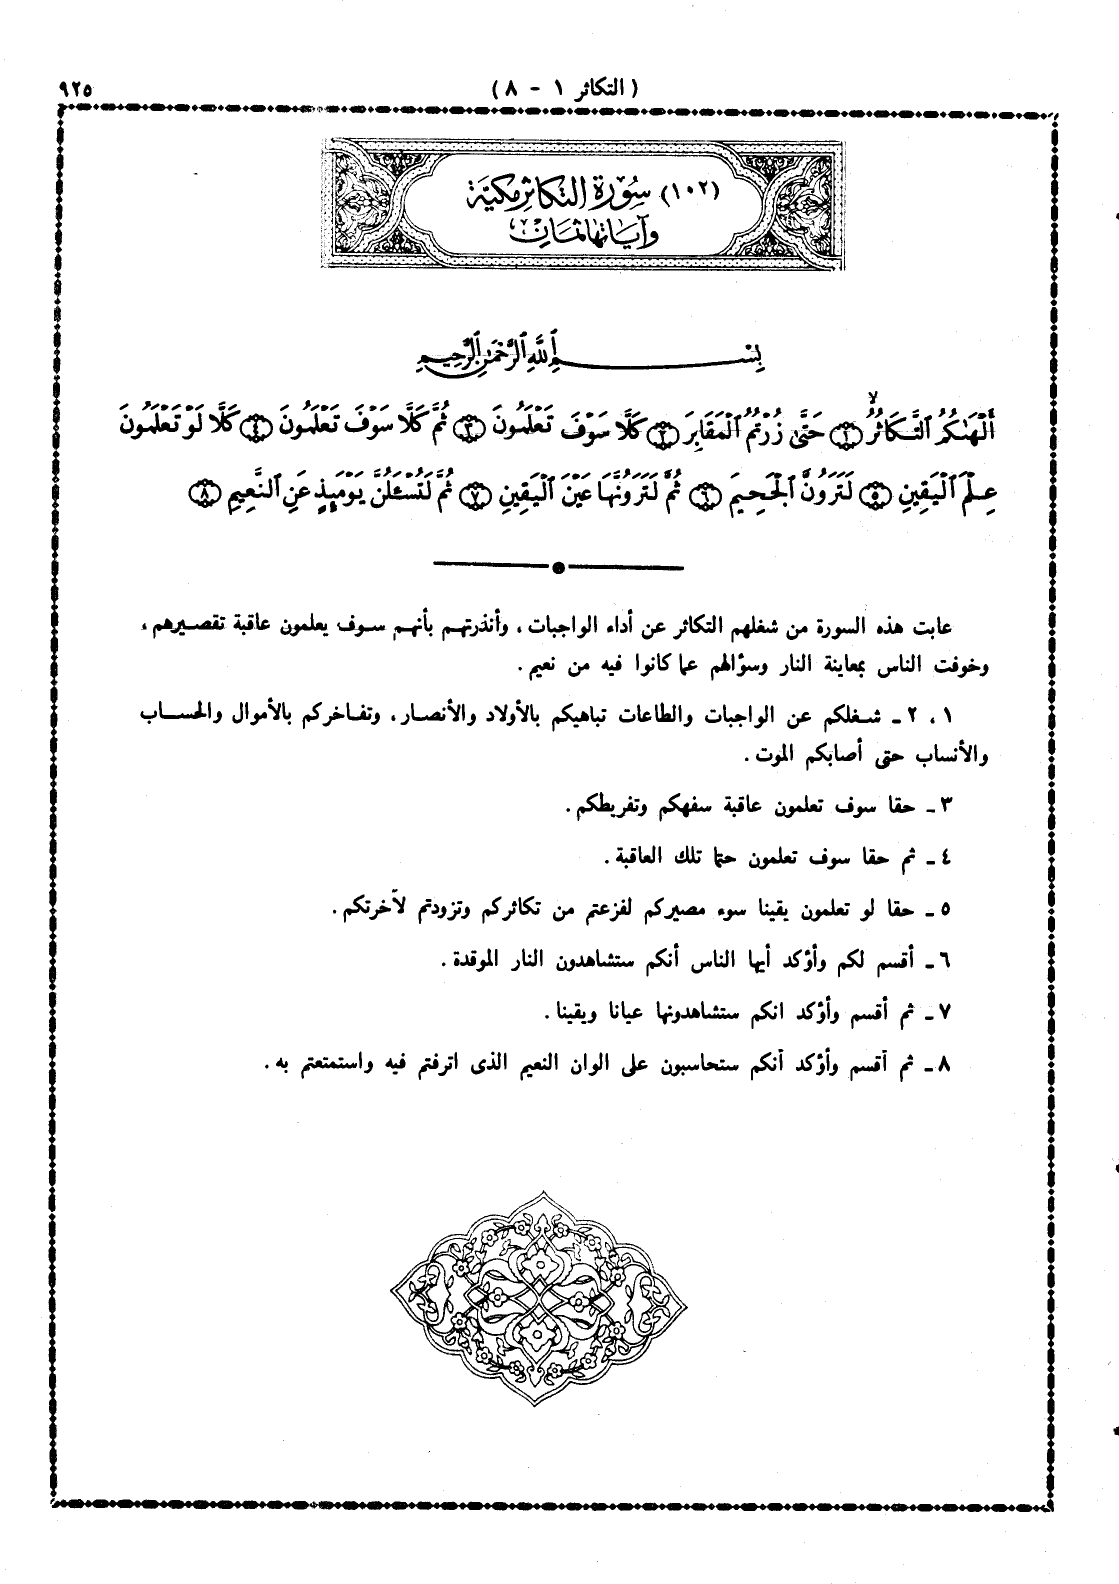 ( التكاثر ١ - ٨ )
٩٢٥
(١٠٢) سُورَة التكاثر مكيّة
وآياتها ثمان
بِسْمِ ٱللَّهِ ٱلرَّحْمَٰنِ ٱلرَّحِيمِ
أَلْهَىٰكُمُ ٱلتَّكَاثُرُ ۙ ﴿١﴾ حَتَّىٰ زُرْتُمُ ٱلْمَقَابِرَ ﴿٢﴾ كَلَّا سَوْفَ تَعْلَمُونَ ﴿٣﴾ ثُمَّ كَلَّا سَوْفَ تَعْلَمُونَ ﴿٤﴾ كَلَّا لَوْ تَعْلَمُونَ
عِلْمَ ٱلْيَقِينِ ﴿٥﴾ لَتَرَوُنَّ ٱلْجَحِيمَ ﴿٦﴾ ثُمَّ لَتَرَوُنَّهَا عَيْنَ ٱلْيَقِينِ ﴿٧﴾ ثُمَّ لَتُسْـَٔلُنَّ يَوْمَئِذٍ عَنِ ٱلنَّعِيمِ ﴿٨﴾
عابت هذه السورة من شغلهم التكاثر عن أداء الواجبات ، وأنذرتهم بأنهم سوف يعلمون عاقبة تقصيرهم ،
وخوفت الناس بمعاينة النار وسؤالهم عما كانوا فيه من نعيم .
١ ، ٢ ـ شغلكم عن الواجبات والطاعات تباهيكم بالأولاد والأنصار ، وتفاخركم بالأموال والحساب
والأنساب حتى أصابكم الموت .
٣ ـ حقا سوف تعلمون عاقبة سفهكم وتفريطكم .
٤ ـ ثم حقا سوف تعلمون حتما تلك العاقبة .
٥ ـ حقا لو تعلمون يقينا سوء مصيركم لفزعتم من تكاثركم وتزودتم لآخرتكم .
٦ ـ أقسم لكم وأؤكد أيها الناس أنكم ستشاهدون النار الموقدة .
٧ ـ ثم أقسم وأؤكد انكم ستشاهدونها عيانا ويقينا .
٨ ـ ثم أقسم وأؤكد أنكم ستحاسبون على الوان النعيم الذى اترفتم فيه واستمتعتم به .